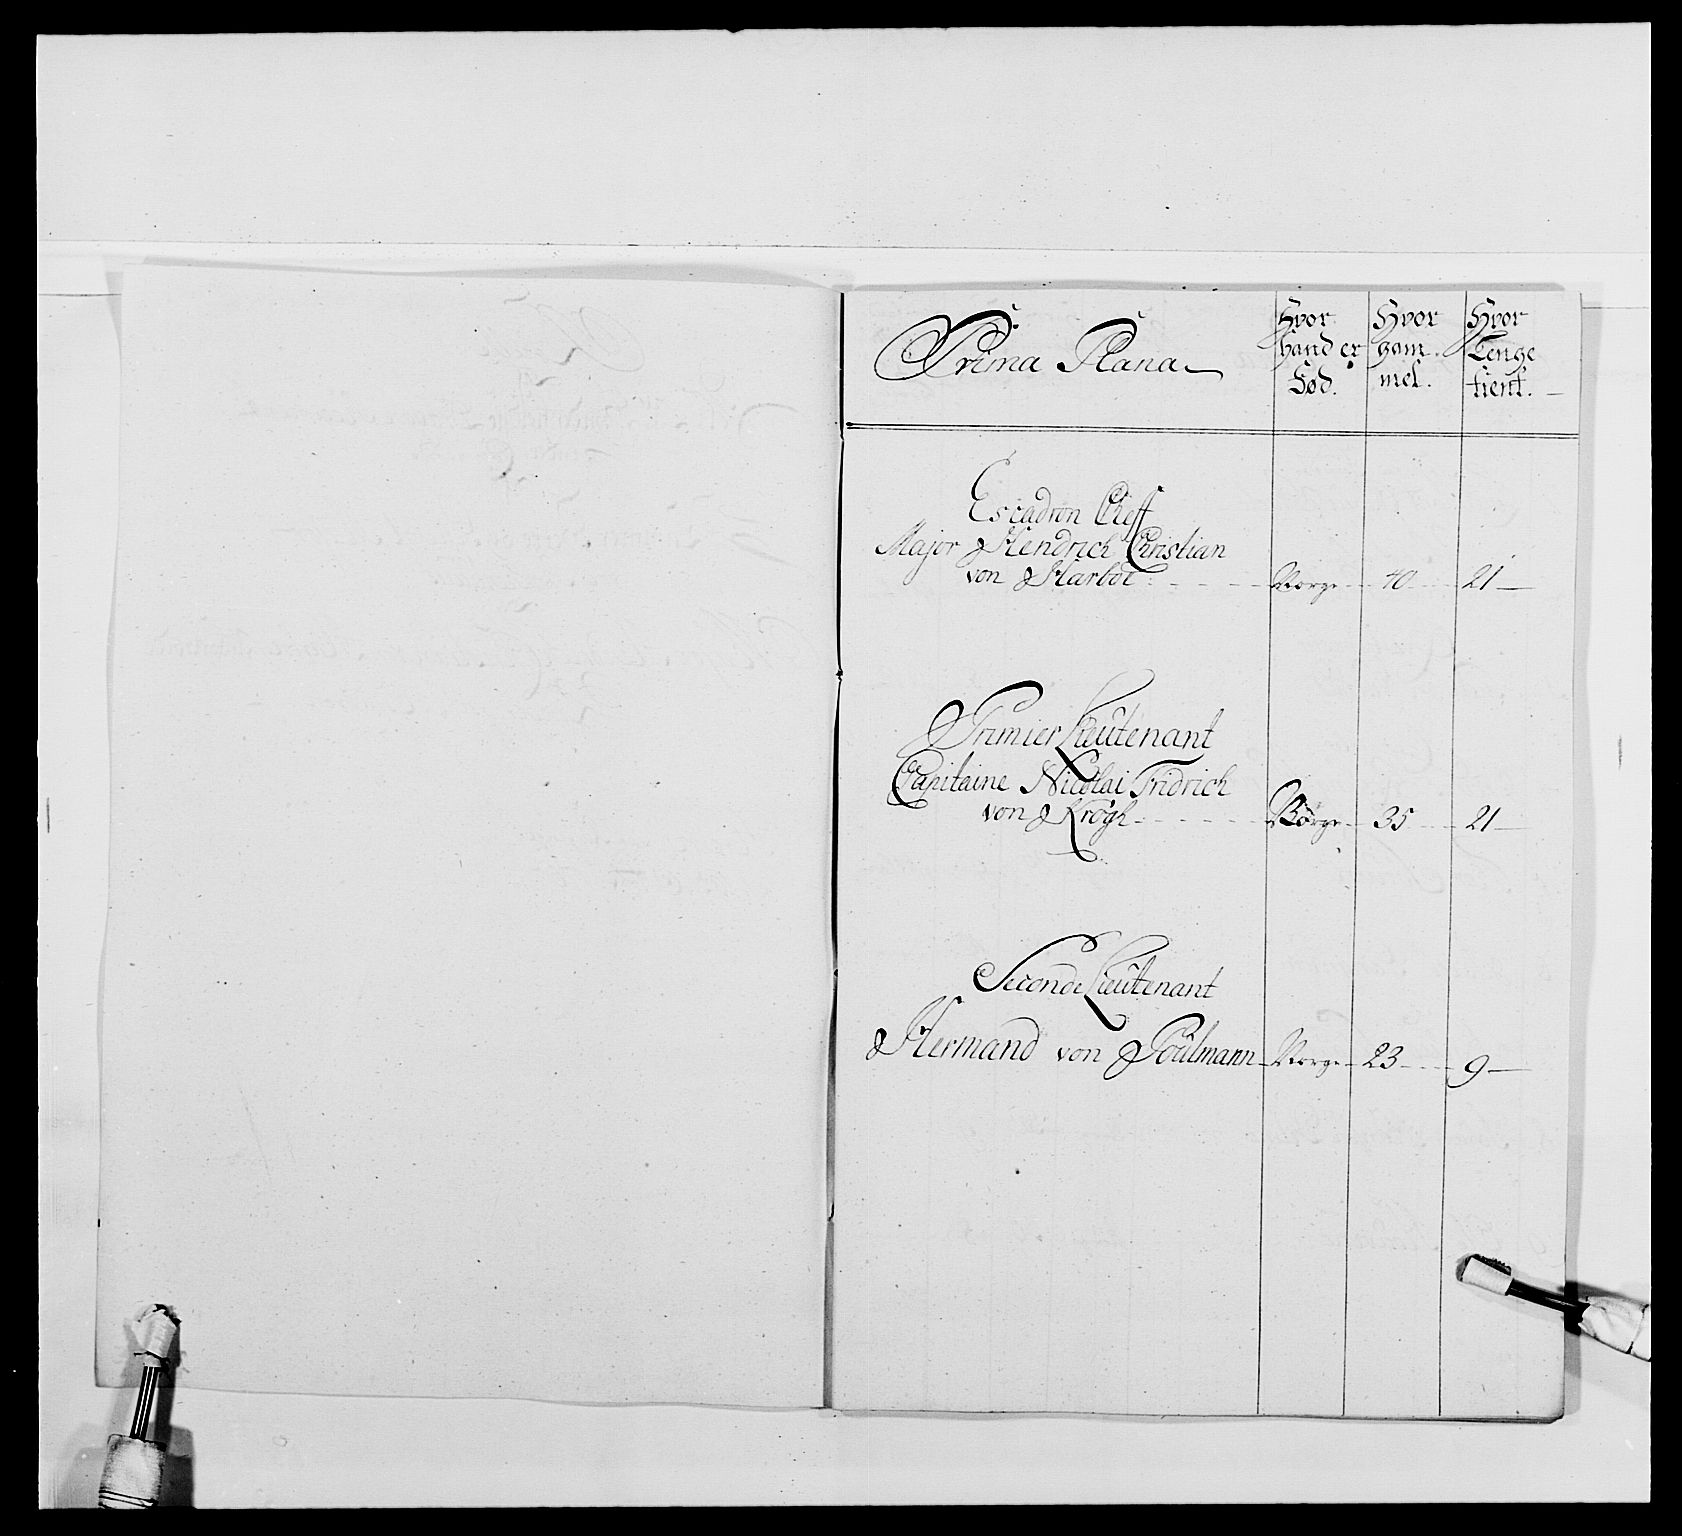 Prima Plana
Hvor hand er Fød.
Hvor gam mel.
Hvor Lenge tient.
Escadron Cheff
Major Hendrich Christian
von Harboe Norge 40 21
Primier Lieutenant
Capitaine Nicolai Fridrich
von Krogh Norge 35 21
Seconde Lieutenant
Hermand von Poulmann Norge 23 9